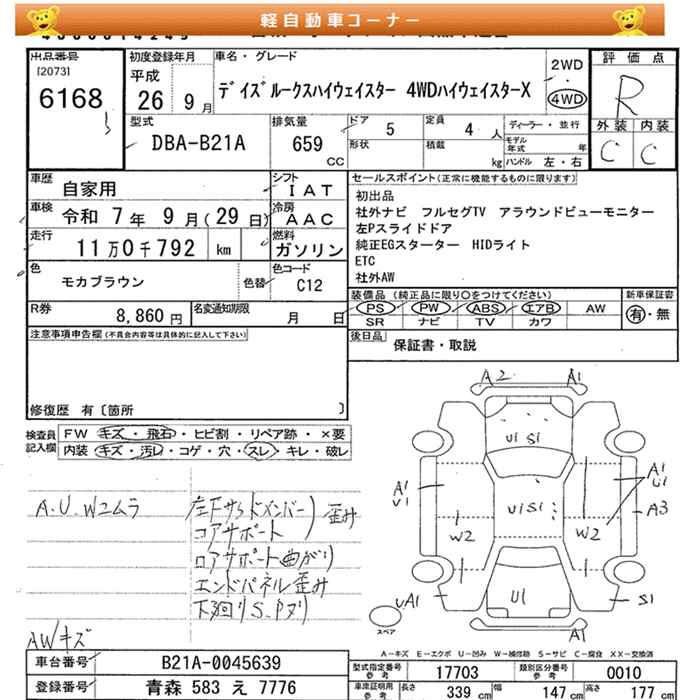 軽自動車コーナー
出品番号
[2073]
6168
初度登録年月
平成
26年 9月
車名・グレード
デイズルークスハイウェイスター 4WDハイウェイスターX
2WD
・
4WD
評価点
R
外装 内装
C C
型式
DBA-B21A
排気量
659
CC
ドア 5
形状
定員 4 人
積載 kg
ディーラー・並行
モデル年式 年
ハンドル 左・右
車歴
自家用
シフト
IAT
車検 令和 7年 9月(29日)
冷房
AAC
走行
11万0千792 km
燃料
ガソリン
色
モカブラウン
色替
色コード
C12
R券
8,860 円
名変通知期限
月 日
セールスポイント(正常に機能するものに限ります)
初出品
社外ナビ フルセグTV アラウンドビューモニター
左Pスライドドア
純正EGスターター HIDライト
ETC
社外AW
装備品(純正品に限り○をつけてください)
PS PW ABS エアB AW
SR ナビ TV カワ
新車保証書
有・無
後日品
保証書・取説
注意事項申告欄(不具合内容等は具体的に記入して下さい)
修復歴 有〔箇所 〕
検査員記入欄
FW キズ・飛石・ヒビ割・リペア跡・×要
内装 キズ・汚レ・コゲ・穴・スレ・キレ・破レ
A.U.W2ムラ
左F サイドメンバー)歪み
コアサポート
ロアサポート曲がり
エンドパネル歪み
下廻りS.Pヌリ
AWキズ
A2 A1
U1 S1
A1
U1
U1S1
A1
U1
A3
W2
W2
UA1
U1
S1
A1
スペア
A-キズ E-エクボ U-凹み W-補修跡 S-サビ C-腐食 XX-交換済
車台番号
B21A-0045639
登録番号
青森 583 え 7776
型式指定番号
参考
17703
類別区分番号
参考
0010
車庫証明用
参考
長さ 339 cm 幅 147 cm 高さ 177 cm